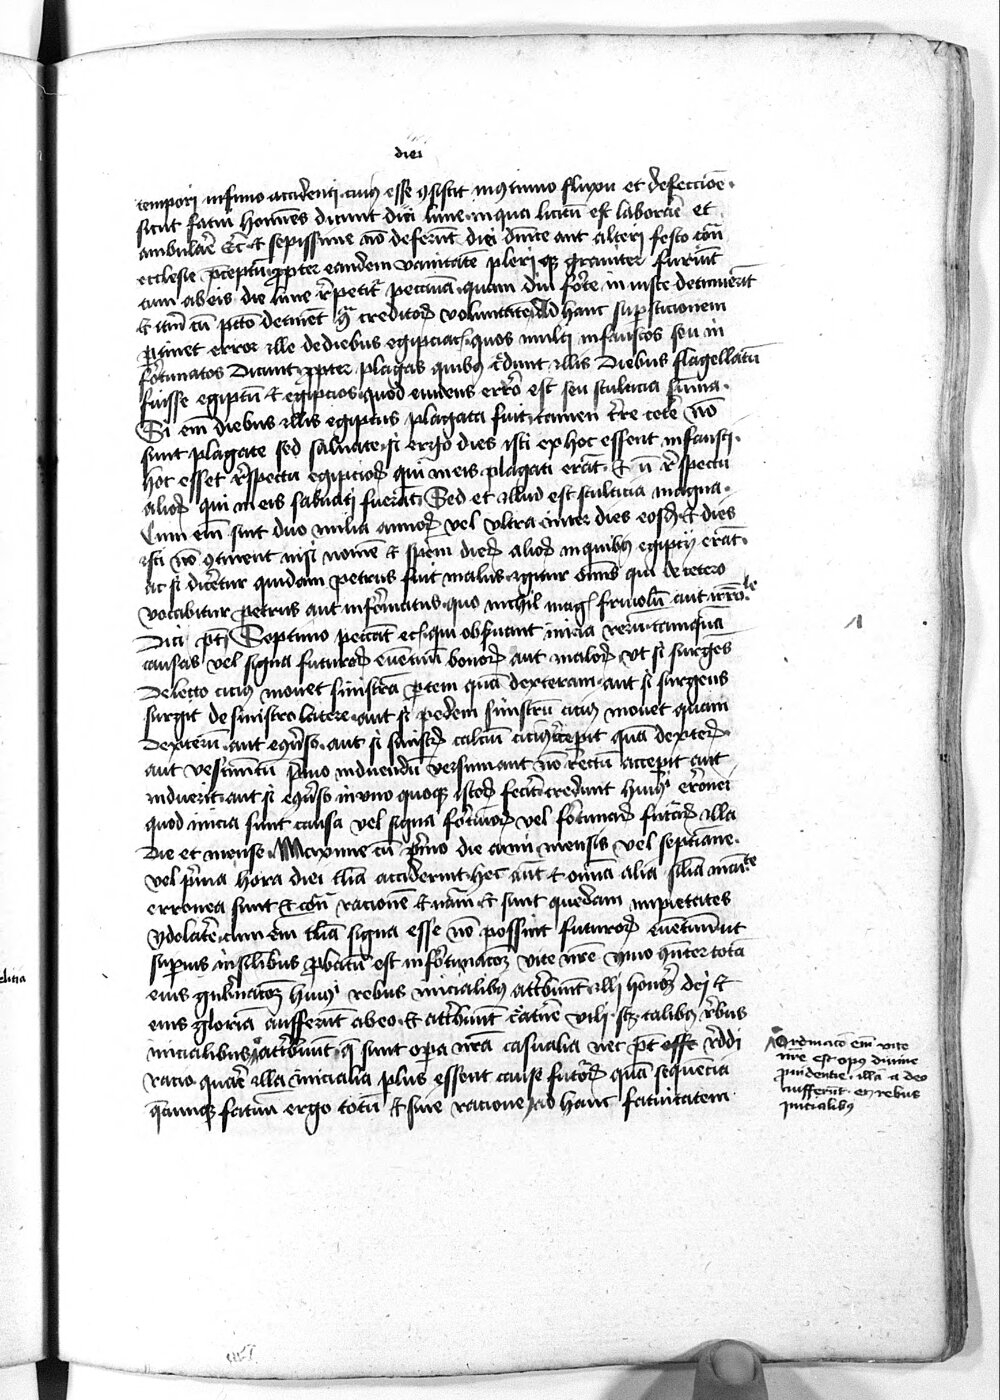 diei
tempori infimo accidenti cuius esse ꝯsistit in ꝯtinuo fluxu et defeccione
sicut fatui homines dicunt diei lune in qua licitū est laborare et
ambulare ⁊c̄ Et sepissime nō deferūt diei dn̄ice aut alteri festo cōtra
ecclesie preceptū ꝓpter eandem vanitatē pleriqꝫ grauiter furiūt
cum ab eis die lune repetitur peccunia quam diu forte iniuste detinuerāt
Et itm̄ cū pctō detinēt ꝯtra creditorꝝ voluntatem Ad hanc supersticionem
pertinet error ille de diebus egipciacis quos multi infaustos seu in
fortunatos dicunt ꝓpter plagas quibus credunt illis diebus flagellatū
fuisse egiptū Et egipcios quod euidens error est seu stulticia summa
Si em̄ diebus illis egiptus plagata fuit tamen terre cetere nō
sunt plagate sed saluate si ergo dies isti ex hoc essent infausti
hoc esset respectu egipciorꝝ qui in eis plagati erāt Et nō respectu
aliorꝝ qui in eis saluati fuerāt Sed et illud est stulticia magna
Cum em̄ sint duo milia annorꝝ vel vltra inter dies eosdē Et dies
isti nō ꝯtinent nisi nomē Et speciem dierꝝ aliorꝝ in quibus egiptii erāt
ac si diceretur quidam petrus fuit malus igitur omnis qui de cetero
vocabitur petrus aut infortunatus quo nichil magis friuolū aut irrōle
Dici pt̄ Septimo peccāt eciā qui obseruant inicia rerū tamquā
causas vel signa futurorꝝ euentuū bonorꝝ aut malorꝝ vt si surgēs
de lecto cicius mouet sinistrā partem quā dexteram aut si surgens
surgit de sinistro latere aut si pedem sinistrū cicius mouet quam
dexterū aut eꝯuerso aut si sinistrū calciū cicius accepit quā dexterū
aut vestimentū primo induendū versum aut nō rectū accepit aut
induerit aut si eꝯuerso in vno quoqꝫ istorꝝ fecerit credunt huiusmodi erronei
quod inicia sunt causa vel signa fortuniorꝝ vel fortunarū futurarū illa
die et mense Maxime cū primo die anni mensis vel septimane
vel prima hora diei talia acciderint hec aūt Et omnia alia similia maīfeste
erronea sunt Et contra racionē Et naturam Et sunt quedam impietates
ydolatrie cum em̄ talia signa esse nō possint futurorꝝ euentuum ut
superius in similibus probatū est infortunacoꝫ vite nr̄e ymo ꝯñter totā
eius gubernacoꝫ huiusmodi rebus inicialibus attribuunt illi honorē dei Et
eius gloriā aufferunt ab eo Et attribuunt creature vili scꝫ talibus rebus
inicialibus attribuunt que sunt opera nr̄a casualia nec pt̄ esse reddi
racio quare illa inicialia plus essent cause futurorꝝ quā sequencia
quecumqꝫ fatuū ergo totū Et sine racione Ad hanc fatuitatem
Ordinacō em̄ vite
nr̄e est opus diuine
prouidentie illā a deo
aufferunt et rebus
inicialibus